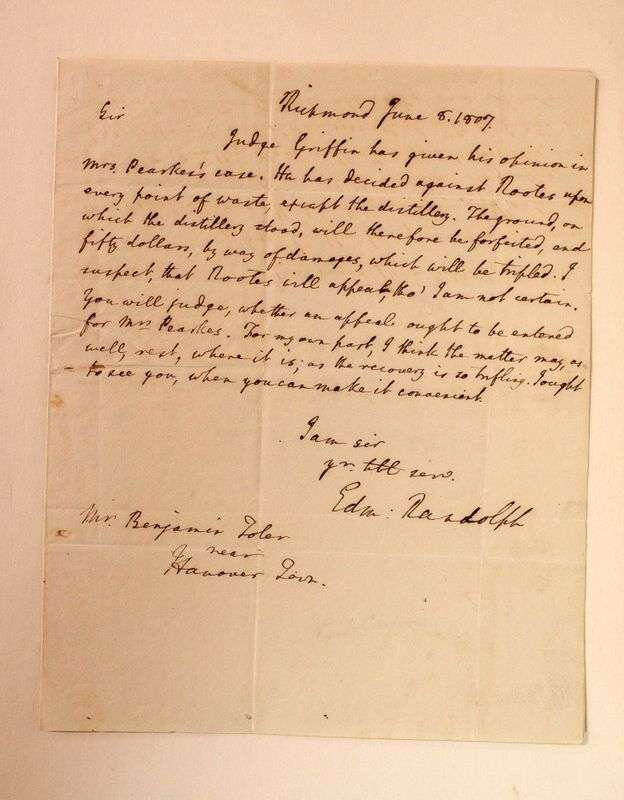 Richmond June 8. 1807.
Sir
Judge Griffin has given his opinion in
Mrs. Pearkes's case. He has decided against Rootes upon
every point of waste, except the distillery. The ground, on
which the distillery stood, will therefore be forfeited, and
fifty dollars, by way of damages, which will be tripled. I
suspect, that Rootes will appeal, tho' I am not certain.
You will judge, whether an appeal ought to be entered
for Mrs Pearkes. For my own part, I think the matter may, as
well, rest, where it is; as the recovery is so trifling. I ought
to see you, when you can make it convenient.
I am sir
yr. hbl serv.
Edm: Randolph
Mr. Benjamin Toler
near
Hanover Town.